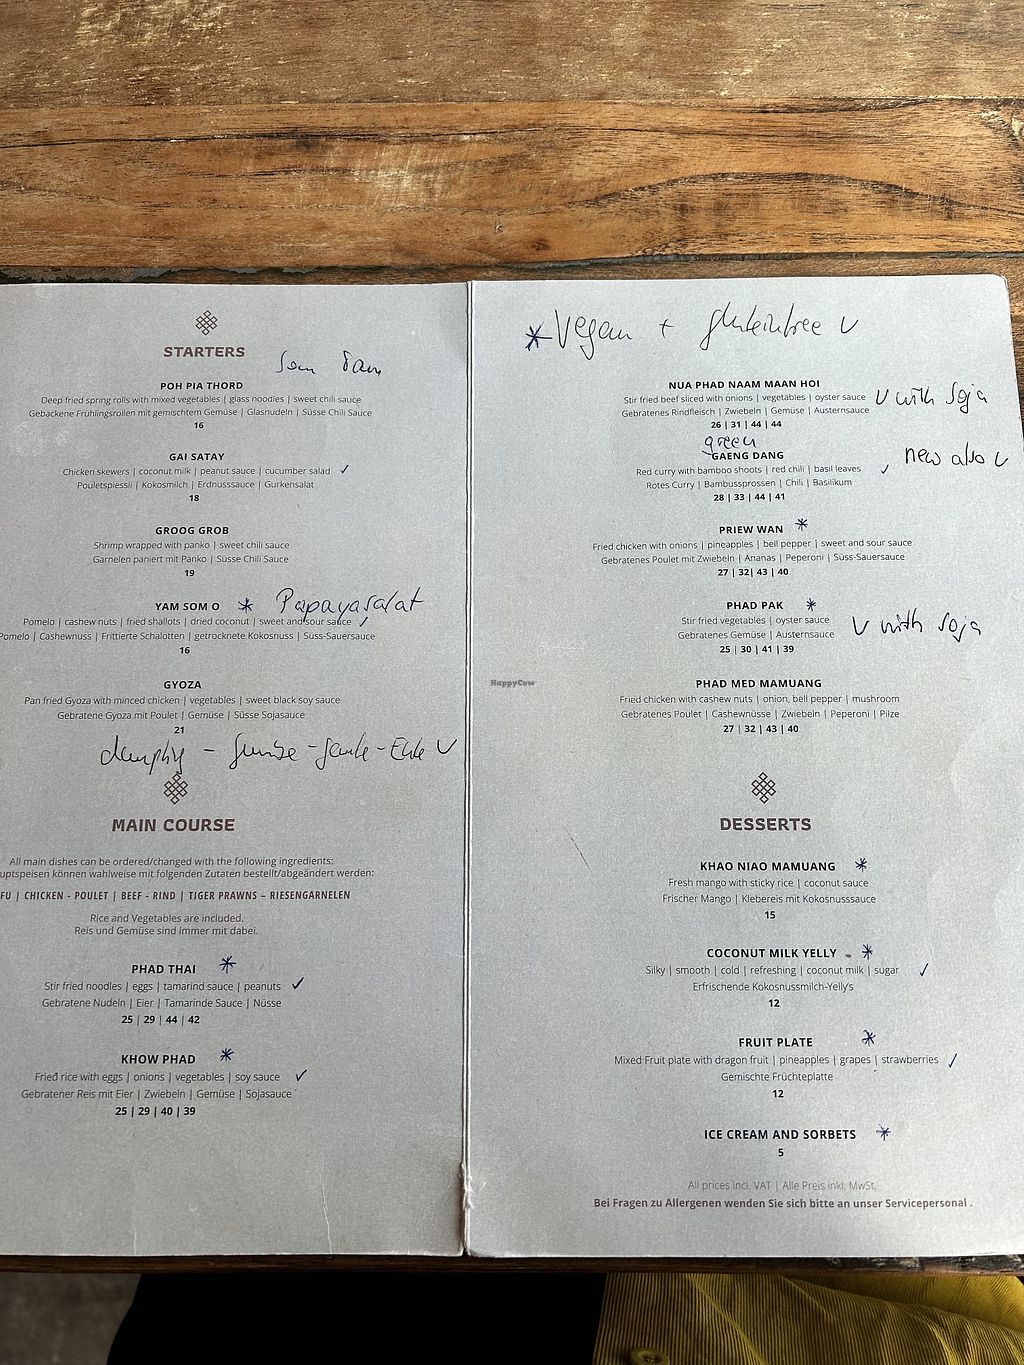 STARTERS
Som Tam
POH PIA THORD
Deep fried spring rolls with mixed vegetables | glass noodles | sweet chili sauce
Gebackene Frühlingsrollen mit gemischtem Gemüse | Glasnudeln | Süsse Chili Sauce
16
GAI SATAY
Chicken skewers | coconut milk | peanut sauce | cucumber salad ✓
Pouletspiessli | Kokosmilch | Erdnusssauce | Gurkensalat
18
GROOG GROB
Shrimp wrapped with panko | sweet chili sauce
Garnelen paniert mit Panko | Süsse Chili Sauce
19
YAM SOM O * Papayasalat
Pomelo | cashew nuts | fried shallots | dried coconut | sweet and sour sauce ✓
Pomelo | Cashewnuss | Frittierte Schalotten | getrocknete Kokosnuss | Süss-Sauersauce
16
GYOZA
Pan fried Gyoza with minced chicken | vegetables | sweet black soy sauce
Gebratene Gyoza mit Poulet | Gemüse | Süsse Sojasauce
21
MAIN COURSE
All main dishes can be ordered/changed with the following ingredients:
uptspeisen können wahlweise mit folgenden Zutaten bestellt/abgeändert werden:
FU | CHICKEN - POULET | BEEF - RIND | TIGER PRAWNS – RIESENGARNELEN
Rice and Vegetables are included.
Reis und Gemüse sind immer mit dabei.
PHAD THAI *
Stir fried noodles | eggs | tamarind sauce | peanuts ✓
Gebratene Nudeln | Eier | Tamarinde Sauce | Nüsse
25 | 29 | 44 | 42
KHOW PHAD *
Fried rice with eggs | onions | vegetables | soy sauce ✓
Gebratener Reis mit Eier | Zwiebeln | Gemüse | Sojasauce
25 | 29 | 40 | 39
* Vegan + glutenfree V
NUA PHAD NAAM MAAN HOI
Stir fried beef sliced with onions | vegetables | oyster sauce V with Soja
Gebratenes Rindfleisch | Zwiebeln | Gemüse | Austernsauce
26 | 31 | 44 | 44
green
GAENG DANG new also V
Red curry with bamboo shoots | red chili | basil leaves ✓
Rotes Curry | Bambussprossen | Chili | Basilikum
28 | 33 | 44 | 41
PRIEW WAN *
Fried chicken with onions | pineapples | bell pepper | sweet and sour sauce
Gebratenes Poulet mit Zwiebeln | Ananas | Peperoni | Süss-Sauersauce
27 | 32| 43 | 40
PHAD PAK *
Stir fried vegetables | oyster sauce V with Soja
Gebratenes Gemüse | Austernsauce
25 | 30 | 41 | 39
HappyCow
PHAD MED MAMUANG
Fried chicken with cashew nuts | onion, bell pepper | mushroom
Gebratenes Poulet | Cashewnüsse | Zwiebeln | Peperoni | Pilze
27 | 32 | 43 | 40
DESSERTS
KHAO NIAO MAMUANG *
Fresh mango with sticky rice | coconut sauce
Frischer Mango | Klebereis mit Kokosnusssauce
15
COCONUT MILK YELLY *
Silky | smooth | cold | refreshing | coconut milk | sugar ✓
Erfrischende Kokosnussmilch-Yelly's
12
FRUIT PLATE *
Mixed Fruit plate with dragon fruit | pineapples | grapes | strawberries ✓
Gemischte Früchteplatte
12
ICE CREAM AND SORBETS *
5
All prices incl. VAT | Alle Preis inkl. MwSt.
Bei Fragen zu Allergenen wenden Sie sich bitte an unser Servicepersonal .